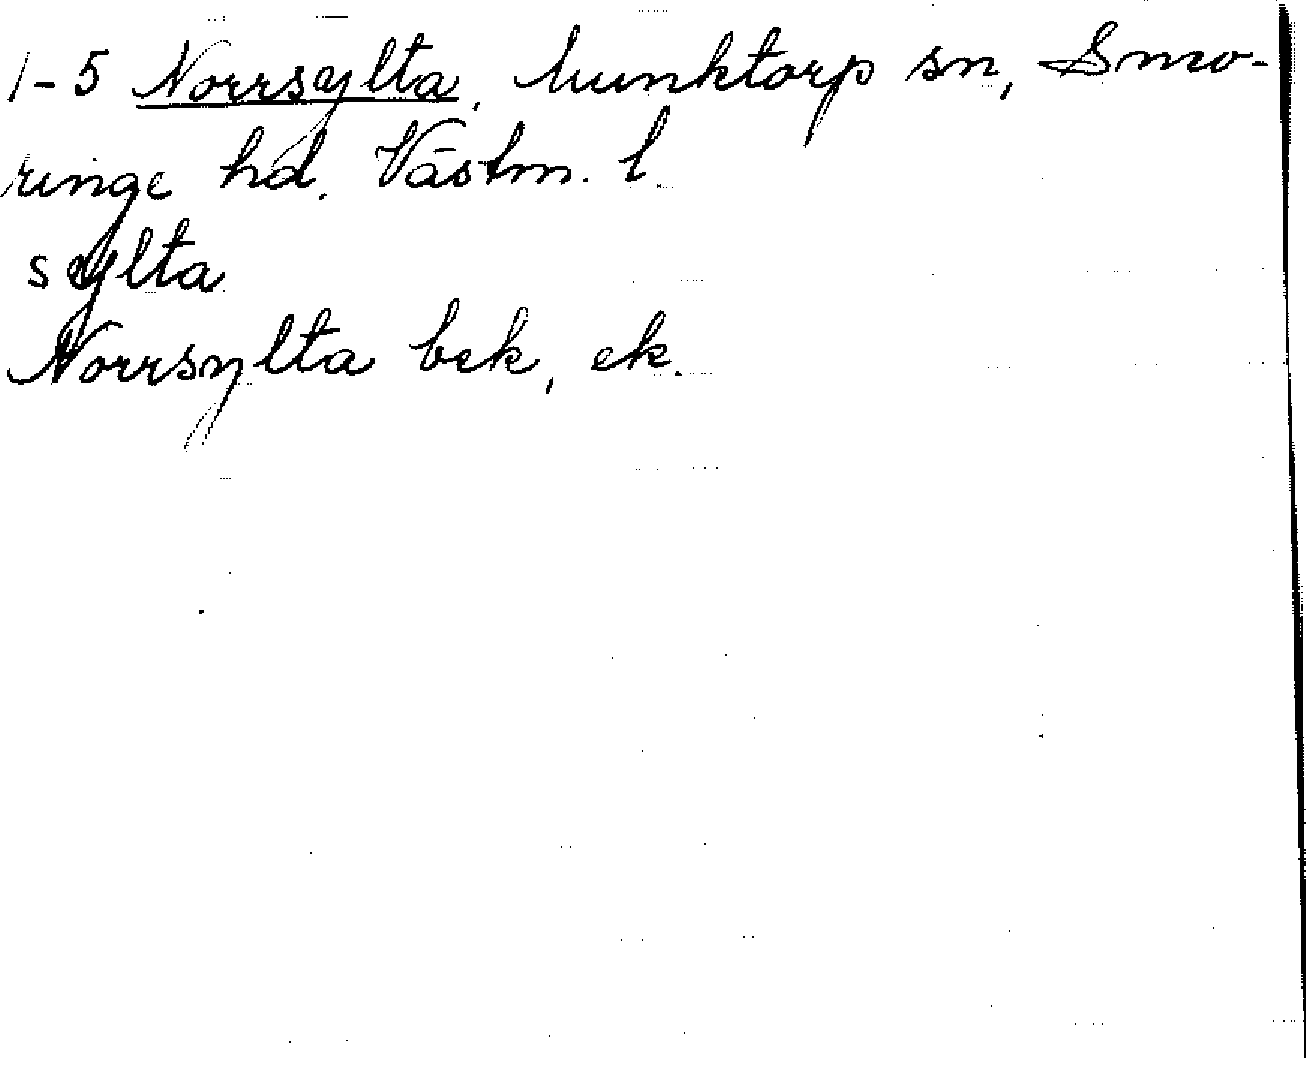 1-5 Norrsylta, Munktorp sn, Snäv-
ringe hd. Västm. l.
sylta
Norrsylta bek, ek.